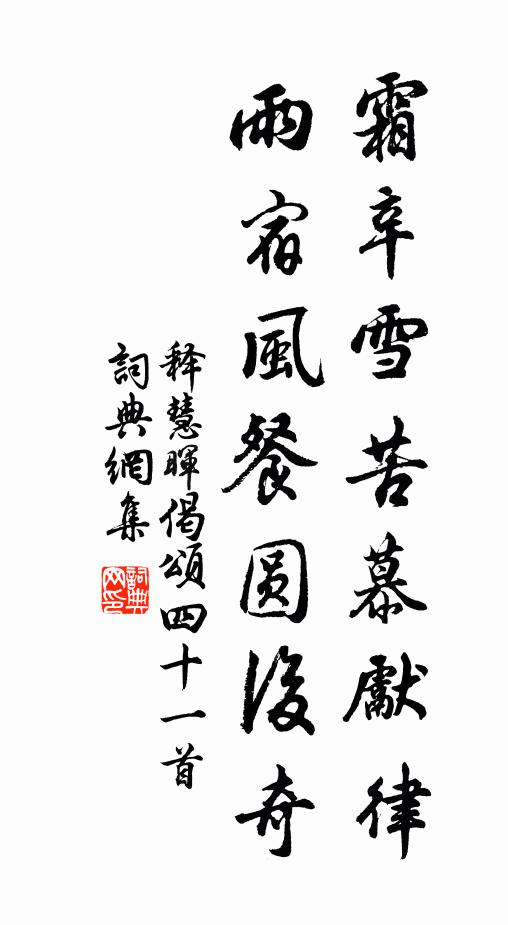 霜辛雪苦慕獻律
雨宿風餐圓後奇
释慧暉偈頌四十一首
詞典網集
詞典網印